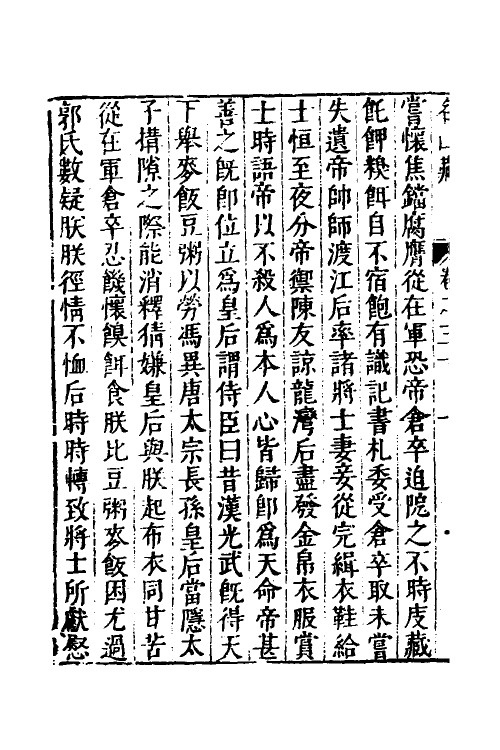 名山藏 卷之三十 一
嘗懷焦鐺腐膺從在軍恐帝倉卒迫阨之不時庋藏
飥餅糗餌自不宿飽有識記書札委受倉卒取未嘗
失遺帝帥師渡江后率諸將士妻妾從完緝衣鞋給
士恒至夜分帝禦陳友諒龍灣后盡發金帛衣服賞
士時語帝以不殺人爲本人心皆歸卽爲天命帝甚
善之旣卽位立爲皇后謂侍臣曰昔漢光武旣得天
下舉麥飯豆粥以勞馮異唐太宗長孫皇后當隱太
子搆隙之際能消釋猜嫌皇后與朕起布衣同甘苦
從在軍倉卒忍饑懷餱餌食朕比豆粥麥飯困尤過
郭氏數疑朕朕徑情不恤后時時轉致將士所獻慰